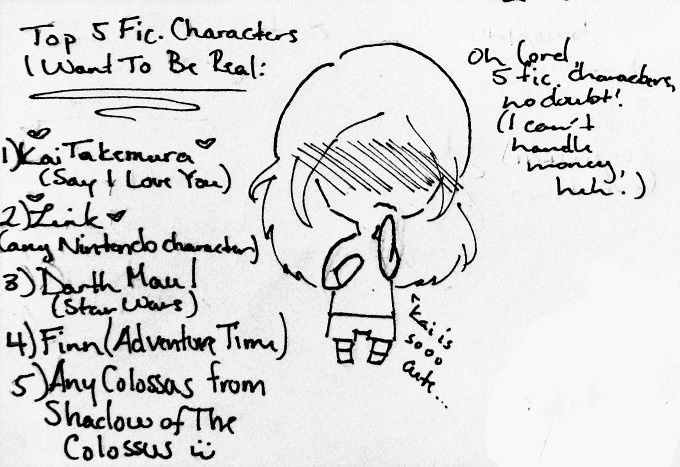 Top 5 Fic. Characters
I Want To Be Real:
1) Kai Takemura
(Say I Love You)
2) Link
(any Nintendo character)
3) Darth Maul
(Star Wars)
4) Finn (Adventure Time)
5) Any Colossas from
Shadow of The
Colossus
Oh Lord
5 fic. characters,
no doubt!
(I can't
handle
money,
heh.)
^ Kai is
sooo
cute...